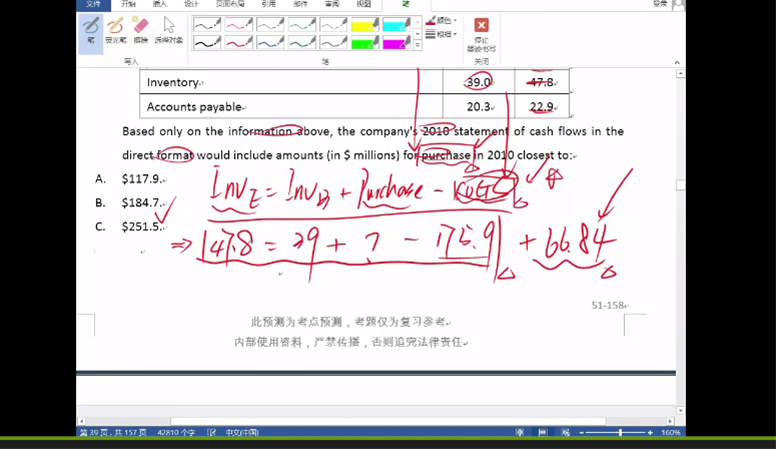 文件 开始 插入 设计 页面布局 引用 邮件 审阅 视图 笔 登录
笔 荧光笔 橡皮擦 选择对象 颜色 粗细 停止墨迹书写
写入 笔
Inventory 39.0 47.8
Accounts payable 20.3 22.9
Based only on the information above, the company's 2010 statement of cash flows in the
direct format would include amounts (in $ millions) for purchase in 2010 closest to:
A. $117.9.
B. $184.7.
C. $251.5.
InvE = InvB + Purchase - COGS
⇒ 47.8 = 39 + ? - 175.9 + 66.84
51-158
此预测为考点预测，考题仅为复习参考
内部使用资料，严禁传播，否则追究法律责任
第 39 页，共 157 页 42810 个字 中文(中国) 160%